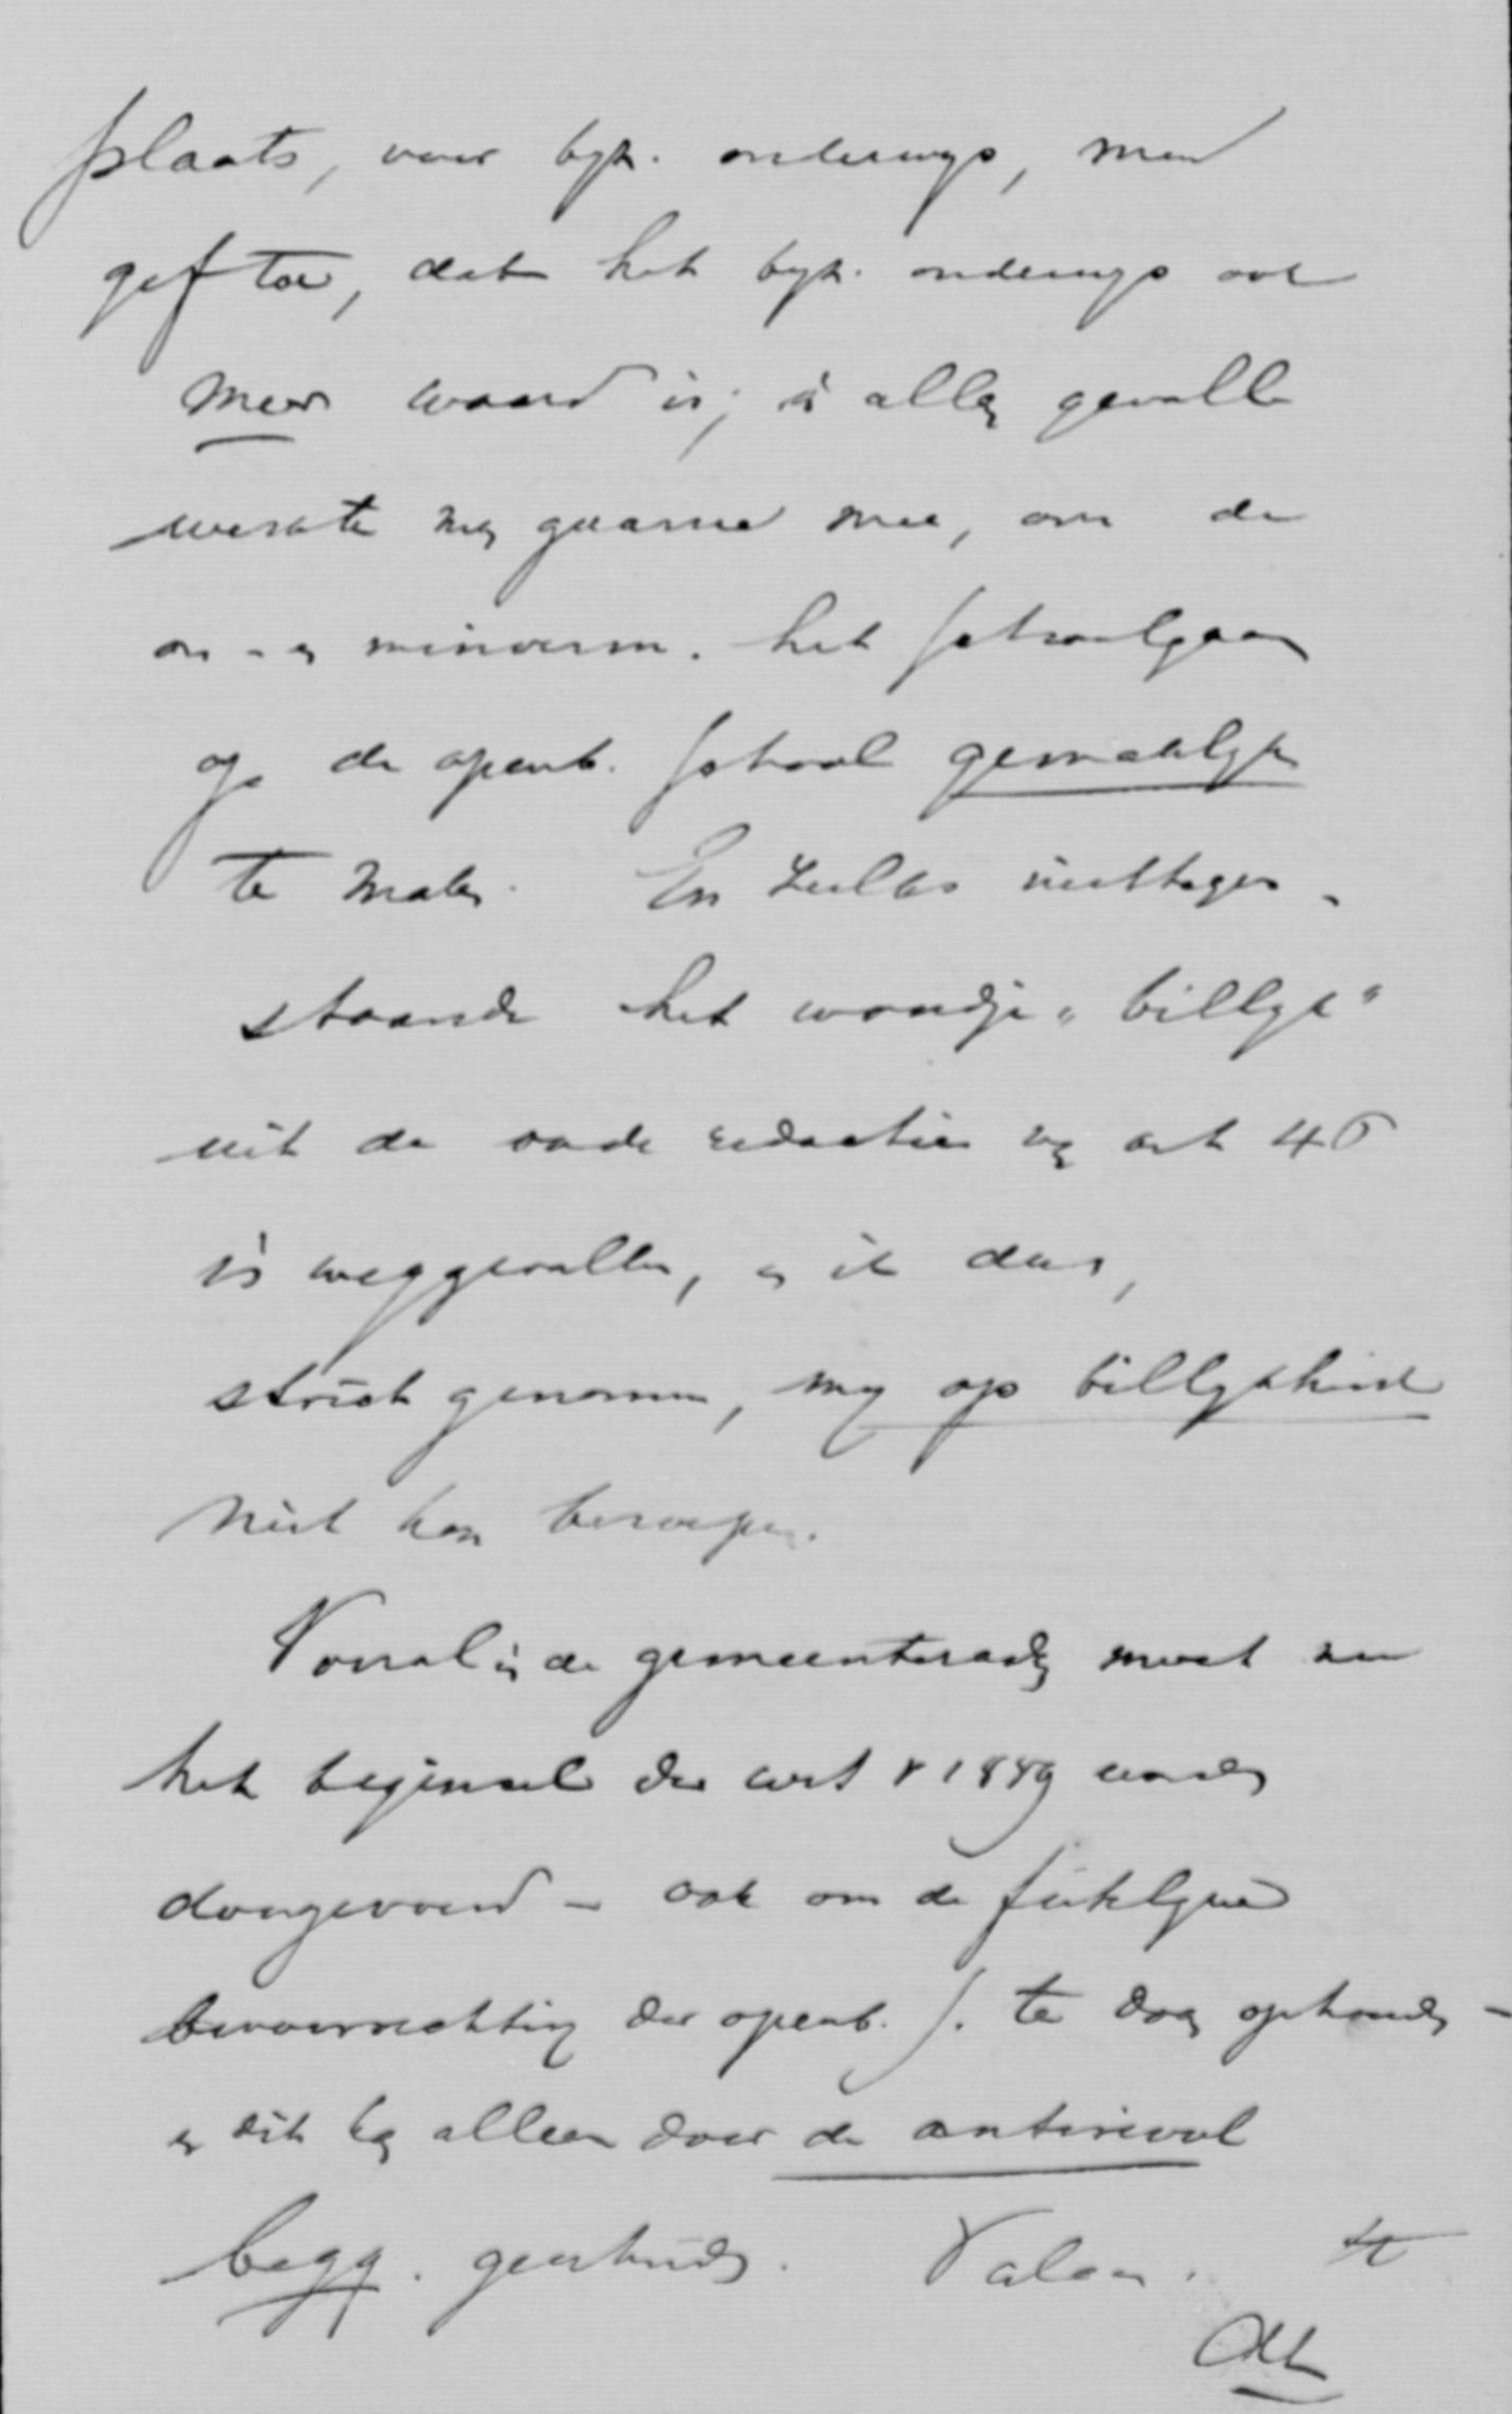 plaats, voor byz. onderwys, men
gaf toe, dat het byz. onderwys ook
meer waard is; in allen gevalle
werkte men gaarne mee, om de
on- en minverm. het schoolgaan
op de openb. school gemakkelyk
te maken. En zulks niettegen-
staande het woordje "billyk"
uit de oude redactie van art 46
is weggevallen, en ik dus,
strict genomen, my op billykheid
niet kan beroepen.
Vooral in de gemeenteraden moet nu
het beginsel der wet v 1889 worden
doorgevoerd - ook om de feitelyke
bevoorrechting der openb. s. te doen ophouden -
en dit kan alleen door de antirevol
begg. geschieden. Vale.